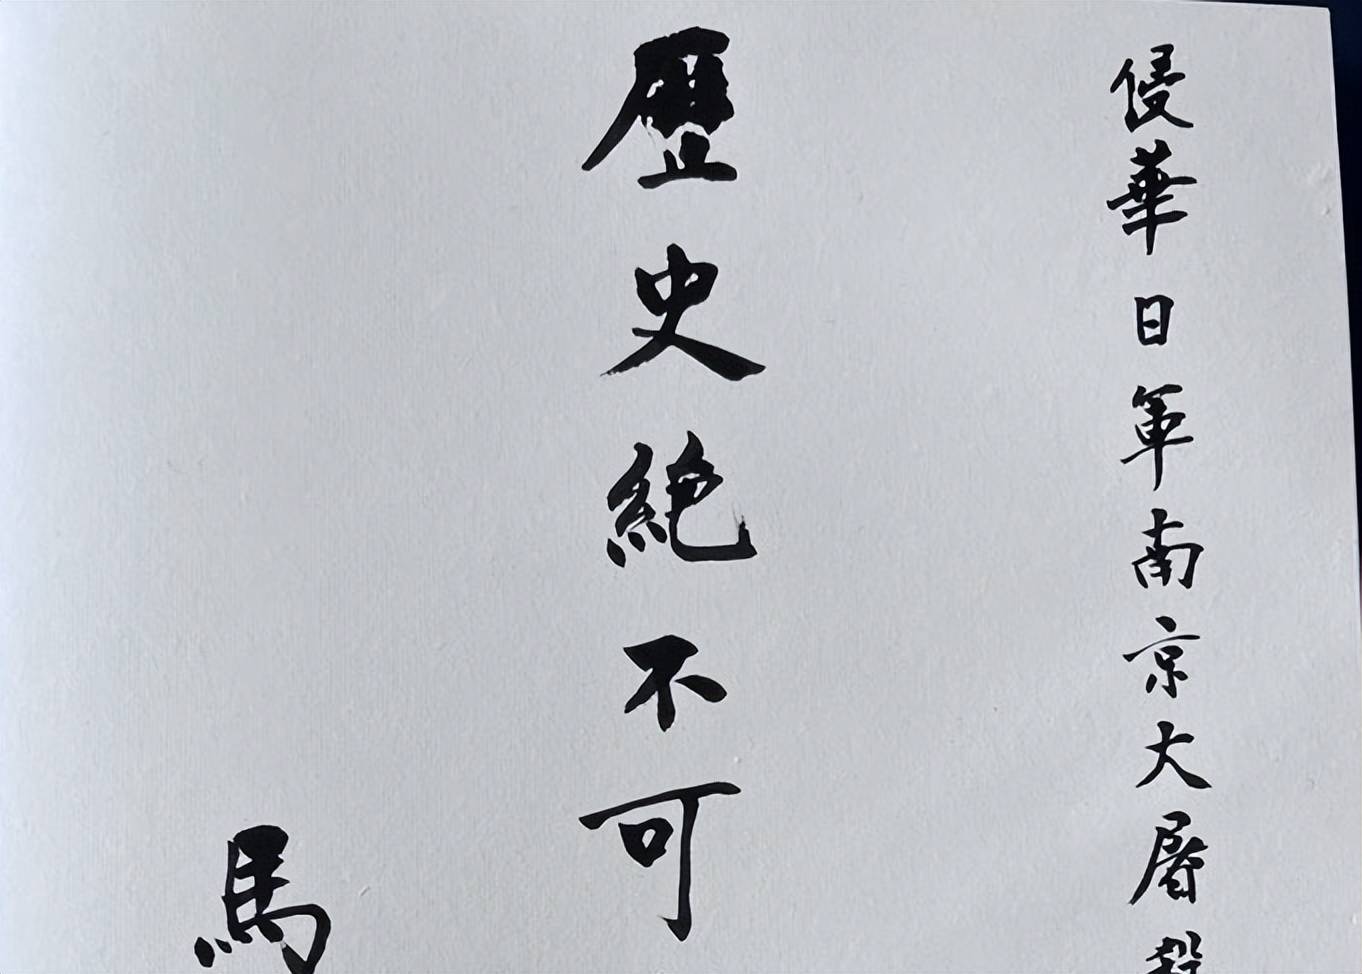 侵華日軍南京大屠殺
歷史絕不可
馬